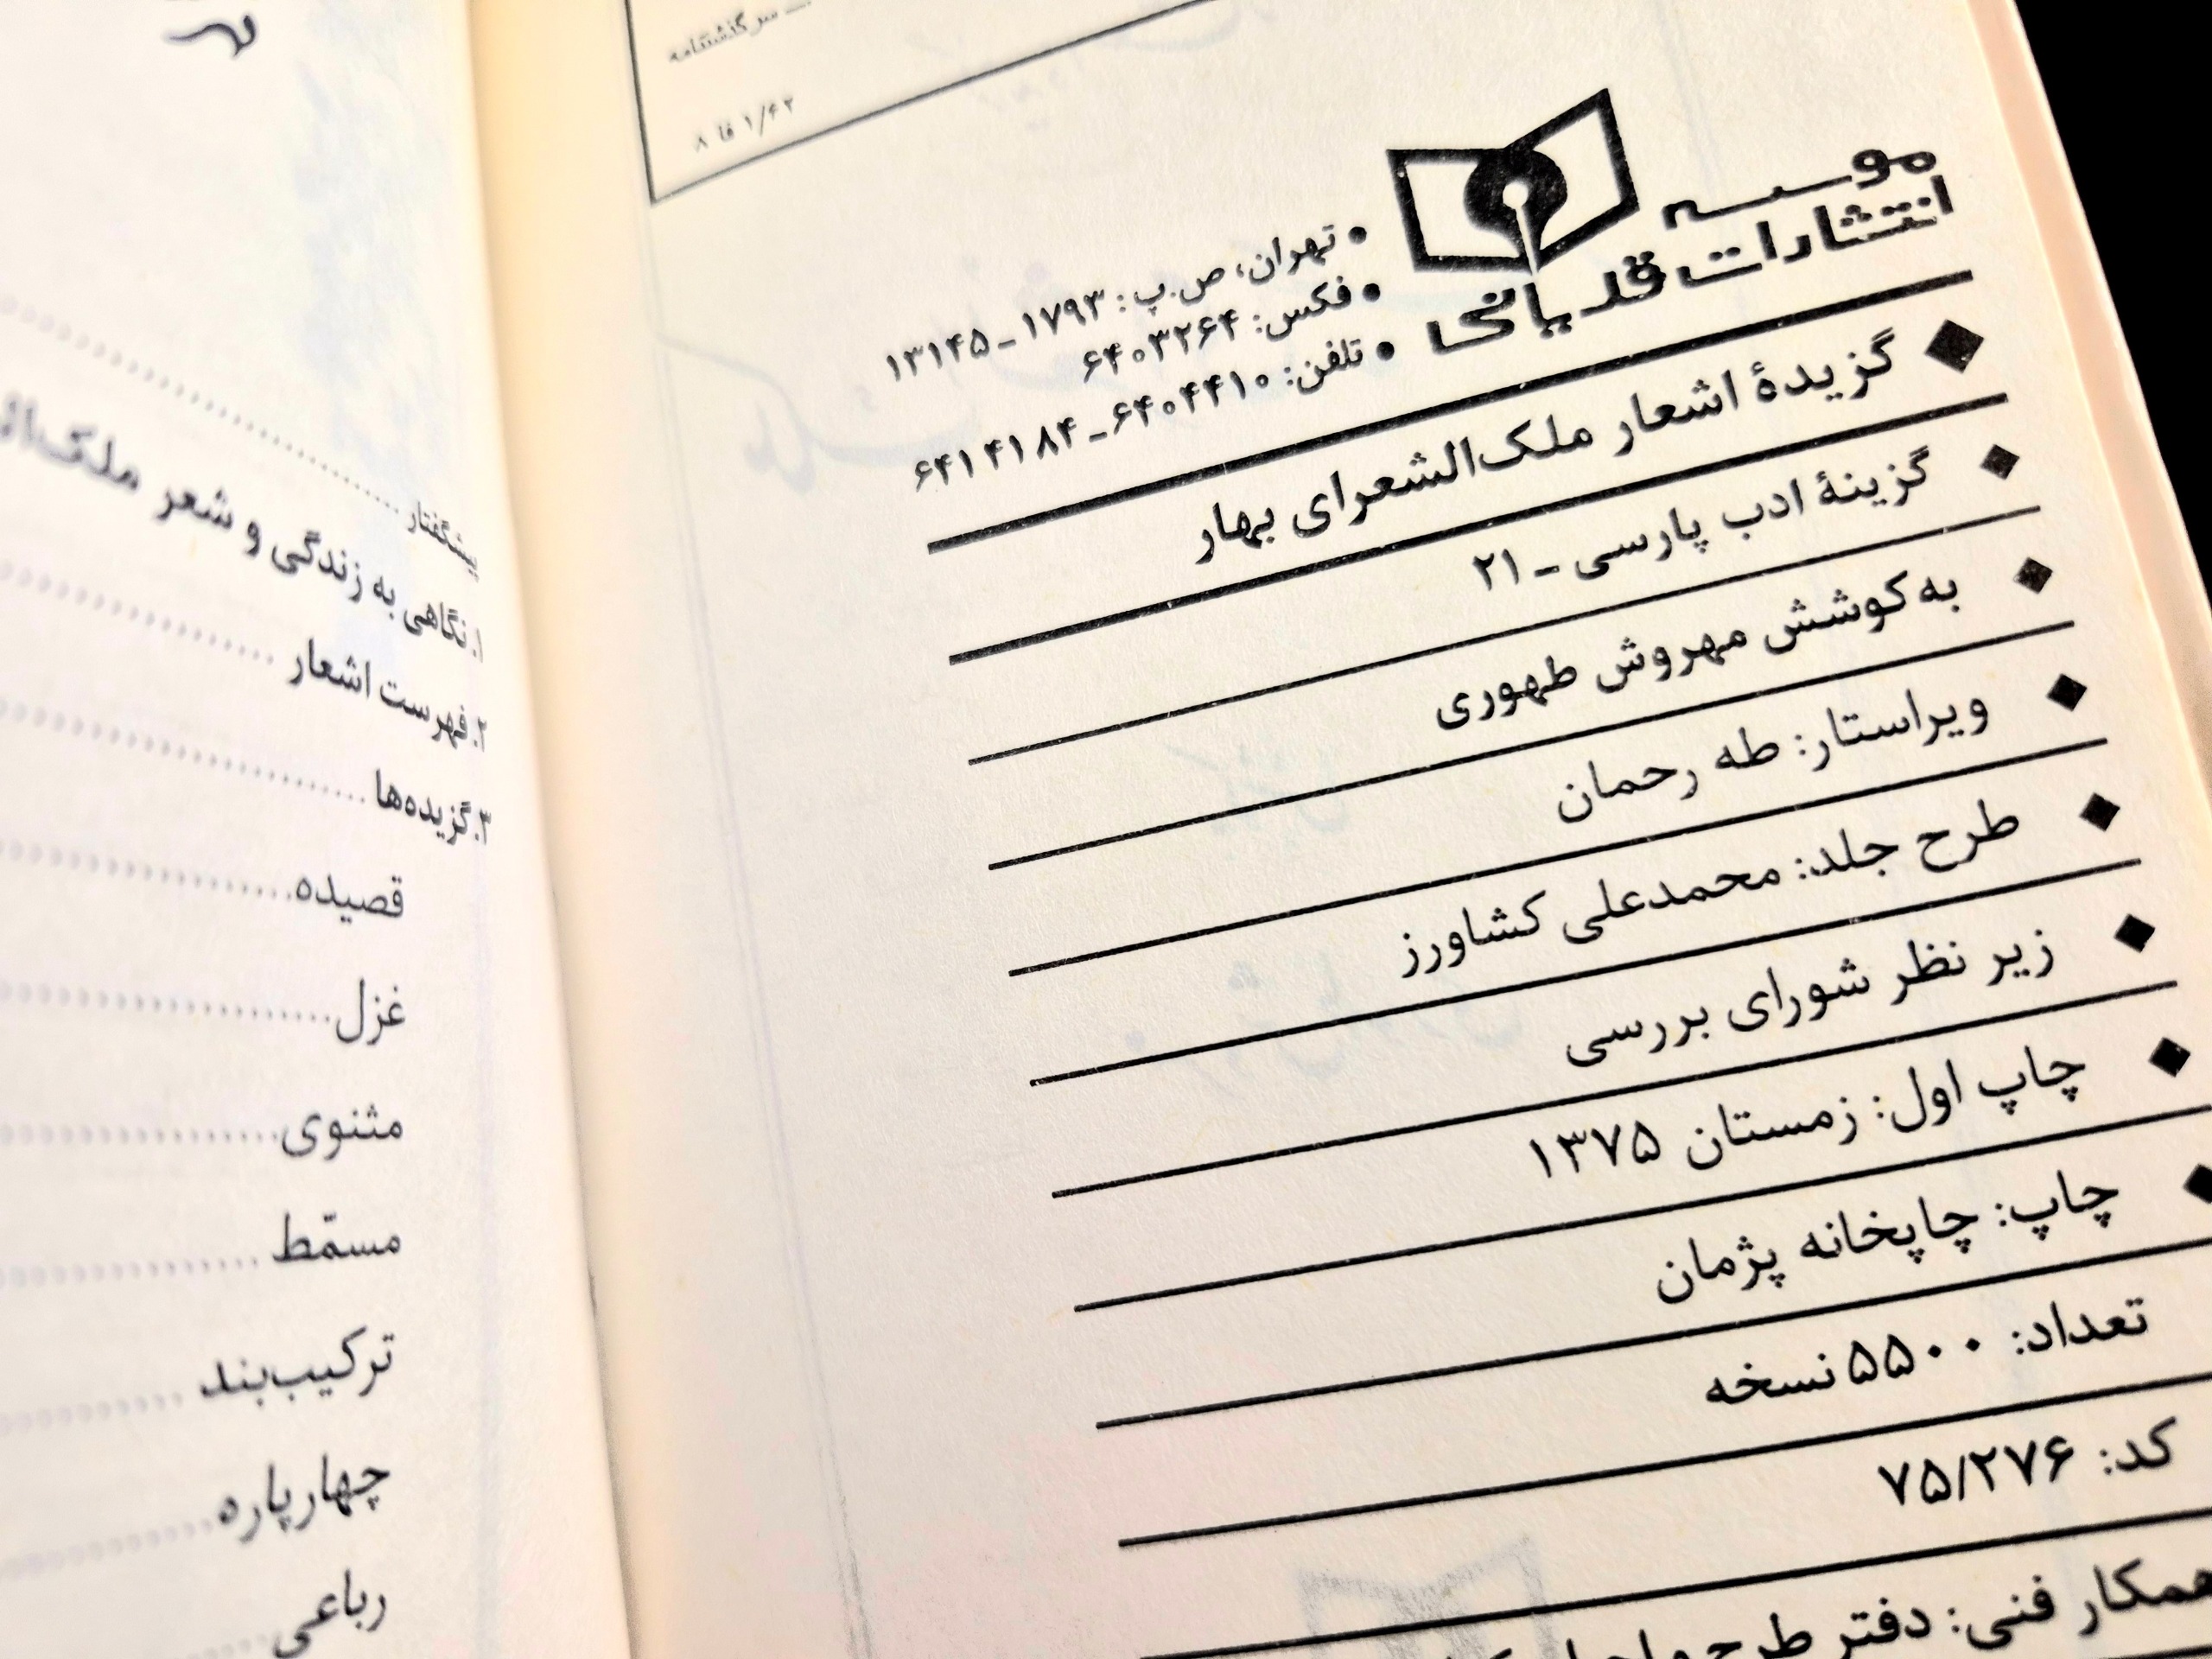 ــ سرگذشتنامه
۱/۶۲ فا ۸
موسسه
انتشارات قدیانی
• تهران، ص.پ: ۱۷۹۳ـ۱۳۱۴۵
• فکس: ۶۴۰۳۲۶۴
• تلفن: ۶۴۰۴۴۱۰ـ۶۴۱۴۱۸۴
◆ گزیدهٔ اشعار ملک‌الشعرای بهار
◆ گزینهٔ ادب پارسی ـ ۲۱
◆ به‌کوشش مهروش طهوری
◆ ویراستار: طه رحمان
◆ طرح جلد: محمدعلی کشاورز
◆ زیر نظر شورای بررسی
◆ چاپ اول: زمستان ۱۳۷۵
◆ چاپ: چاپخانه پژمان
تعداد: ۵۵۰۰ نسخه
کد: ۷۵/۲۷۶
همکار فنی: دفتر طرح و
پیشگفتار
۱. نگاهی به زندگی و شعر
۲. فهرست اشعار
۳. گزیده‌ها
قصیده
غزل
مثنوی
مسمّط
ترکیب‌بند
چهارپاره
رباعی